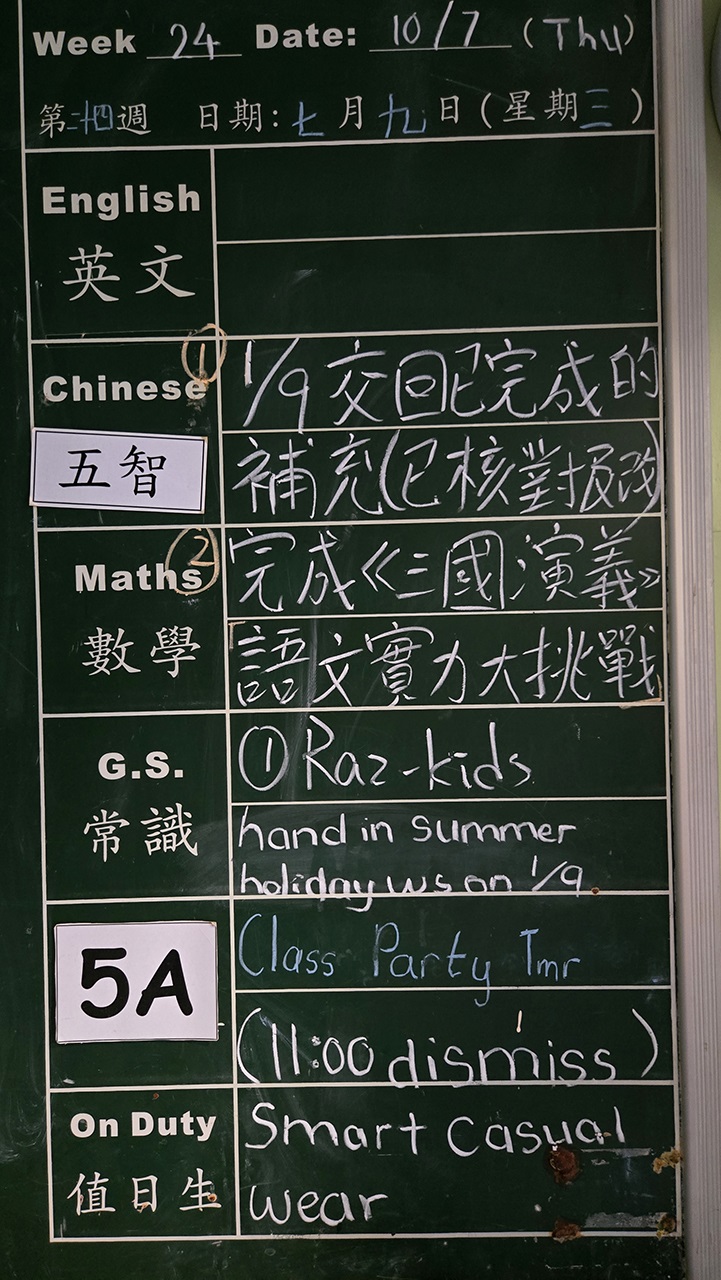 Week 24 Date: 10/7 (Thu)
第二十四週 日期:七月九日(星期三)
English
英文
Chinese
五智
① 1/9 交回已完成的
補充(已核對報改)
Maths
數學
② 完成《三國演義》
語文實力大挑戰
G.S.
常識
① Raz-kids
hand in summer
holiday ws on 1/9.
5A
Class Party Tmr
(11:00 dismiss)
On Duty
值日生
Smart casual
wear